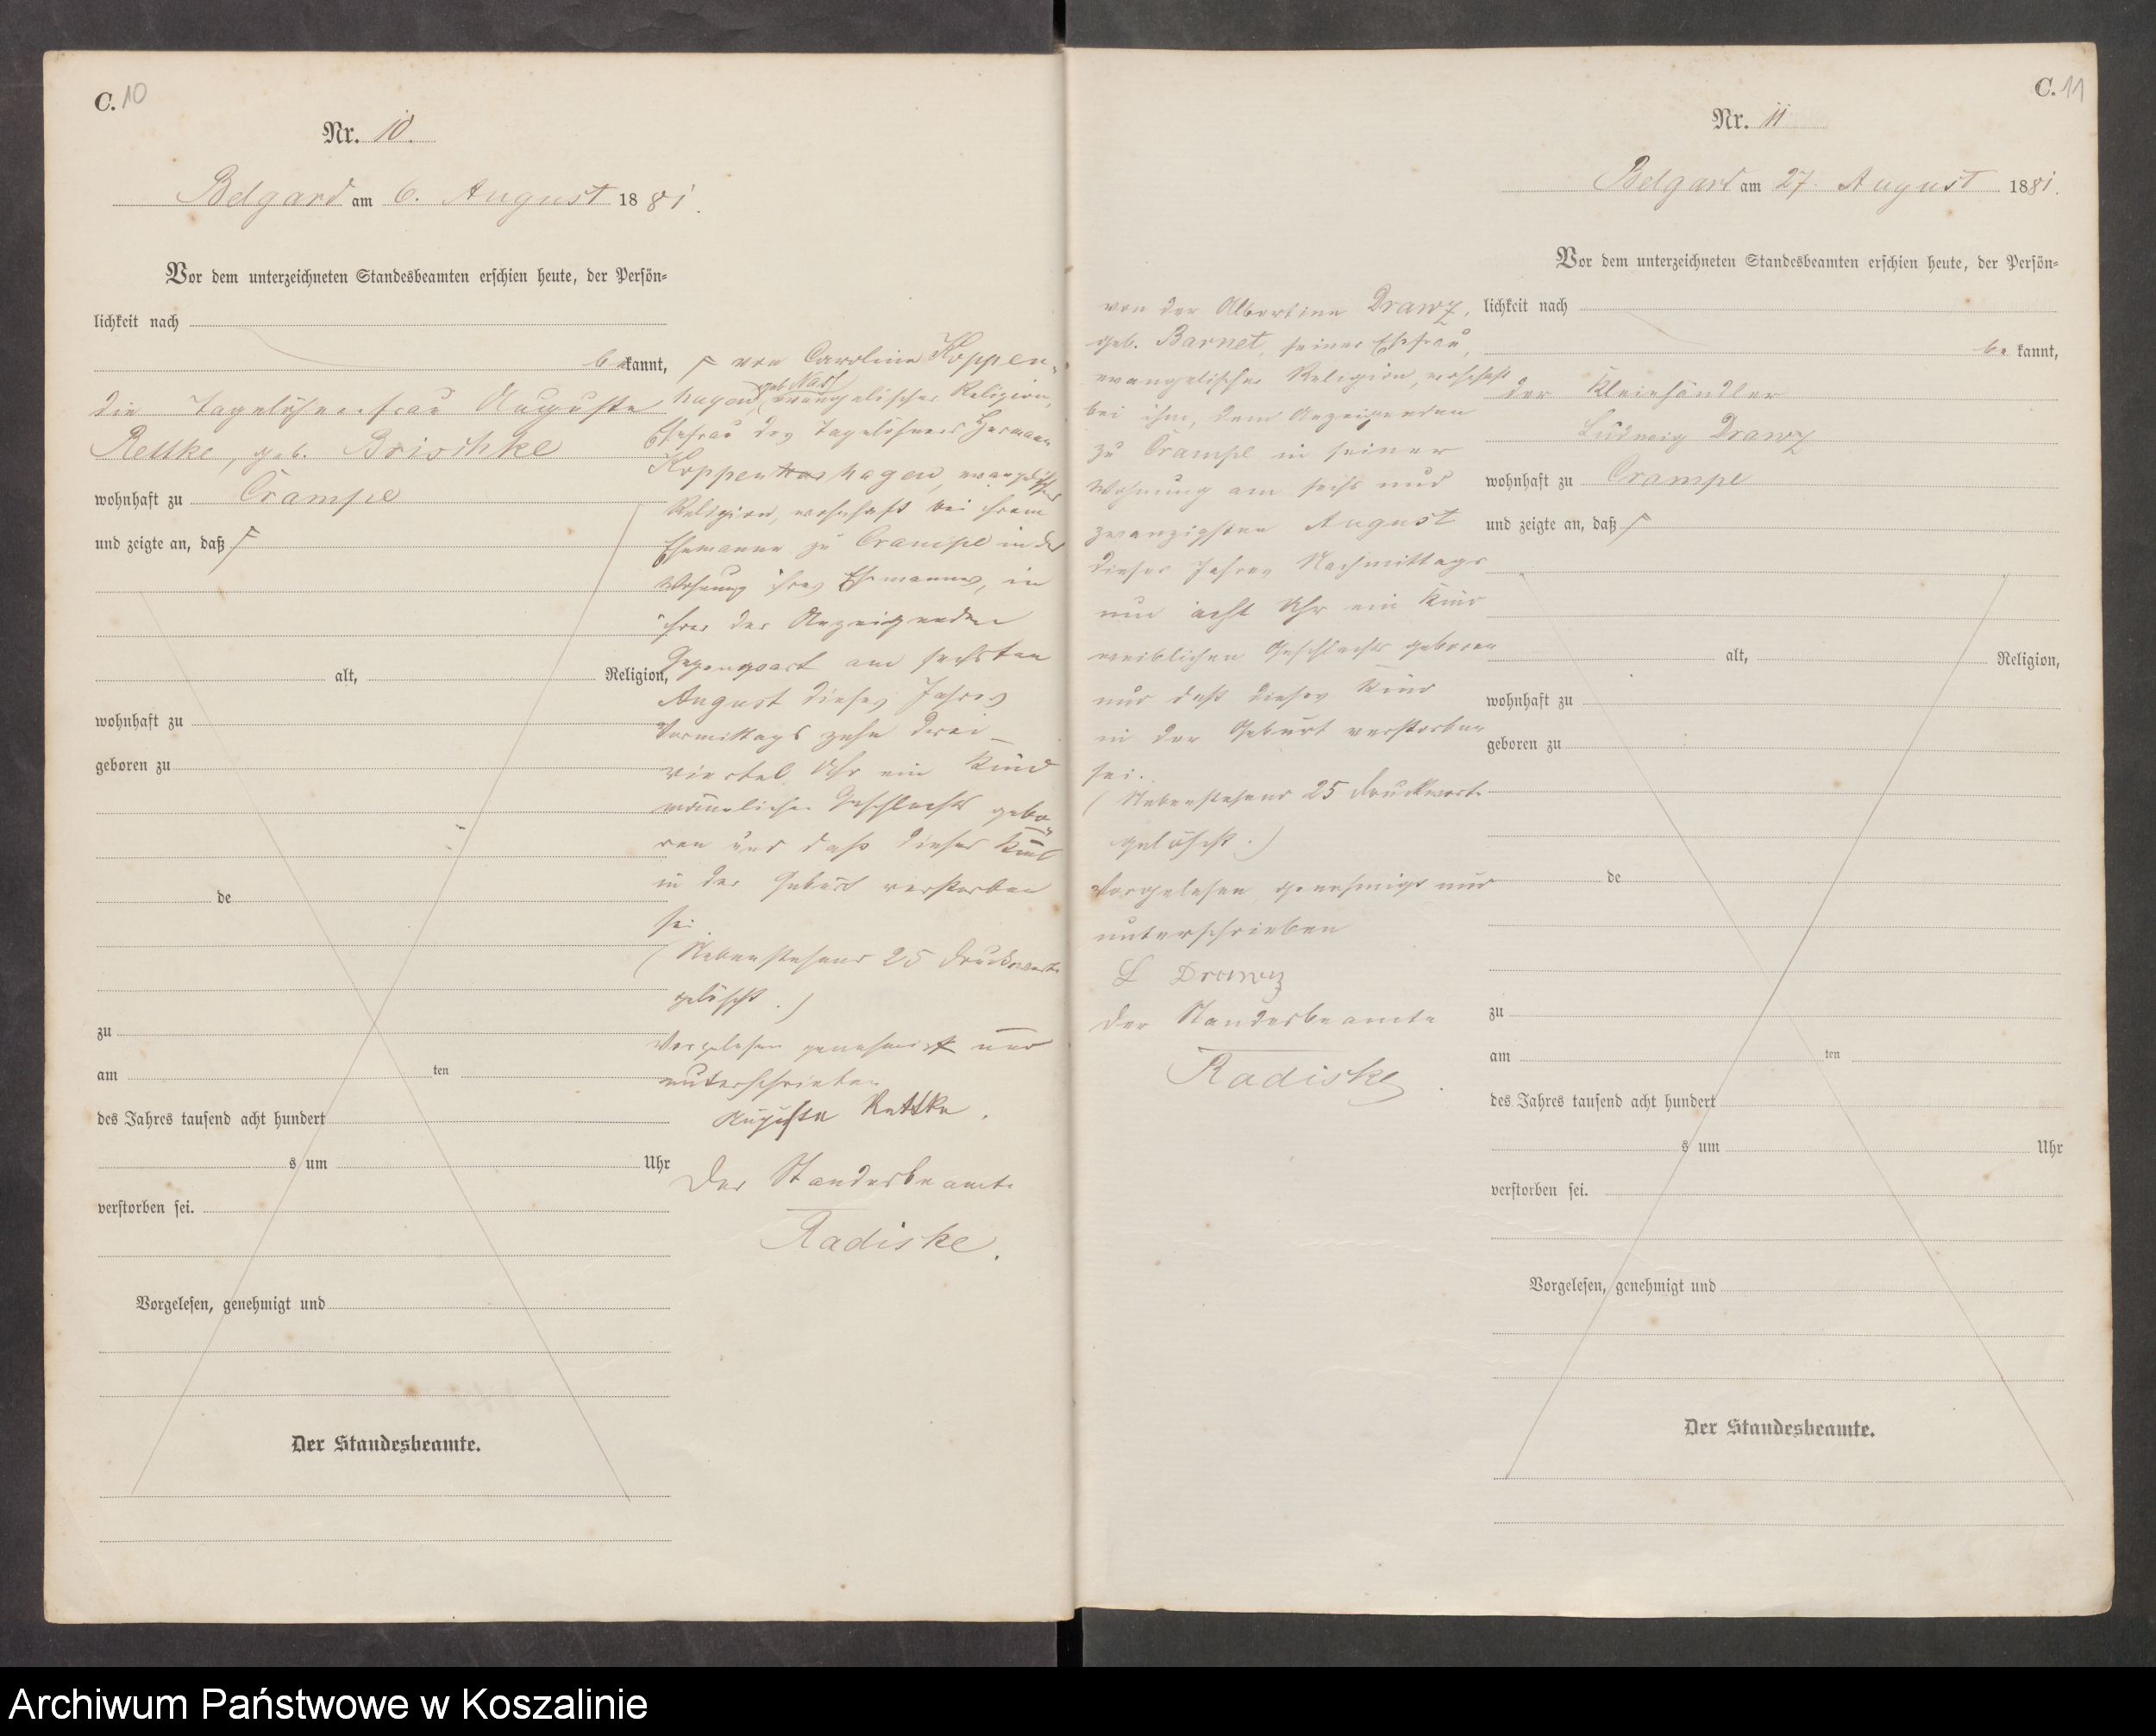 C. 10
Nr. 10.
Belgard am 6. August 1881.
Vor dem unterzeichneten Standesbeamten erschien heute, der Persön=
lichkeit nach
bekannt,
die Tagelöhnerfrau Auguste
Rettke, geb. Brischke
wohnhaft zu Crampe
und zeigte an, daß
alt, Religion,
wohnhaft zu
geboren zu
de
zu
am ten
des Jahres tausend acht hundert
s um Uhr
verstorben sei.
Vorgelesen, genehmigt und
Der Standesbeamte.
von Caroline Koppen-
hagen, geb. Nass evangelischer Religion,
Ehefrau des Tagelöhners Hermann
Koppenhagen, evangelischer
Religion, wohnhaft bei ihrem
Ehemanne zu Crampe in der
Wohnung ihres Ehemannes, in
ihrer der Anzeigenden
Gegenwart am sechsten
August dieses Jahres
Vormittags zehn drei-
viertel Uhr ein Kind
männlichen Geschlechts gebo-
ren und daß dieses Kind
in der Geburt verstorben
sei.
(Nebenstehend 25 Druckworte
gelöscht.)
Vorgelesen genehmigt und
unterschrieben
Auguste Rettke.
Der Standesbeamte
Radiske.
C. 11
Nr. 11
Belgard am 27. August 1881.
Vor dem unterzeichneten Standesbeamten erschien heute, der Persön=
lichkeit nach
bekannt,
der Kleinhändler
Ludwig Drawz
wohnhaft zu Crampe
und zeigte an, daß
alt, Religion,
wohnhaft zu
geboren zu
de
zu
am ten
des Jahres tausend acht hundert
s um Uhr
verstorben sei.
Vorgelesen, genehmigt und
Der Standesbeamte.
von der Albertine Drawz,
geb. Barnet, seiner Ehefrau,
evangelischer Religion, wohnhaft
bei ihm, dem Anzeigenden
zu Crampe in seiner
Wohnung am sechs und
zwanzigsten August
dieses Jahres Nachmittags
um acht Uhr ein Kind
weiblichen Geschlechts geboren
und daß dieses Kind
in der Geburt verstorben
sei.
(Nebenstehend 25 Druckworte
gelöscht.)
Vorgelesen, genehmigt und
unterschrieben
L Drawz
Der Standesbeamte
Radiske
Archiwum Państwowe w Koszalinie